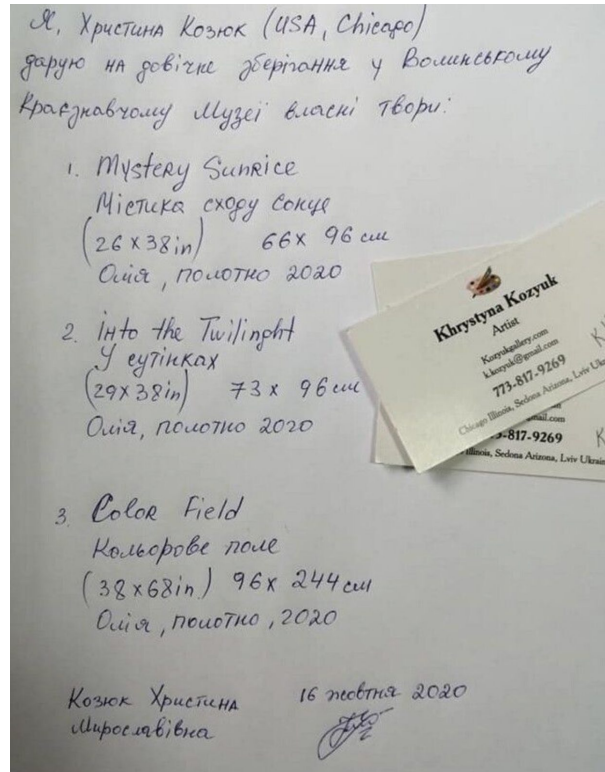 Я, Христина Козюк (USA, Chicago)
дарую на довічне зберігання у Волинському
Краєзнавчому Музеї власні твори:
1. Mystery Sunrice
Містика сходу сонце
(26 x 38in) 66 x 96 см
Олія, полотно 2020
2. Into the Twilinght
У сутінках
(29 x 38in) 73 x 96 см
Олія, полотно 2020
3. Color Field
Кольорове поле
(38 x 68in.) 96 x 244 см
Олія, полотно, 2020
Козюк Христина 16 жовтня 2020
Мирославівна
Khrystyna Kozyuk
Artist
Kozyukgallery.com
k.kozyuk@gmail.com
773-817-9269
Chicago Illinois, Sedona Arizona, Lviv Ukra
mail.com
3-817-9269
Illinois, Sedona Arizona, Lviv Ukrain